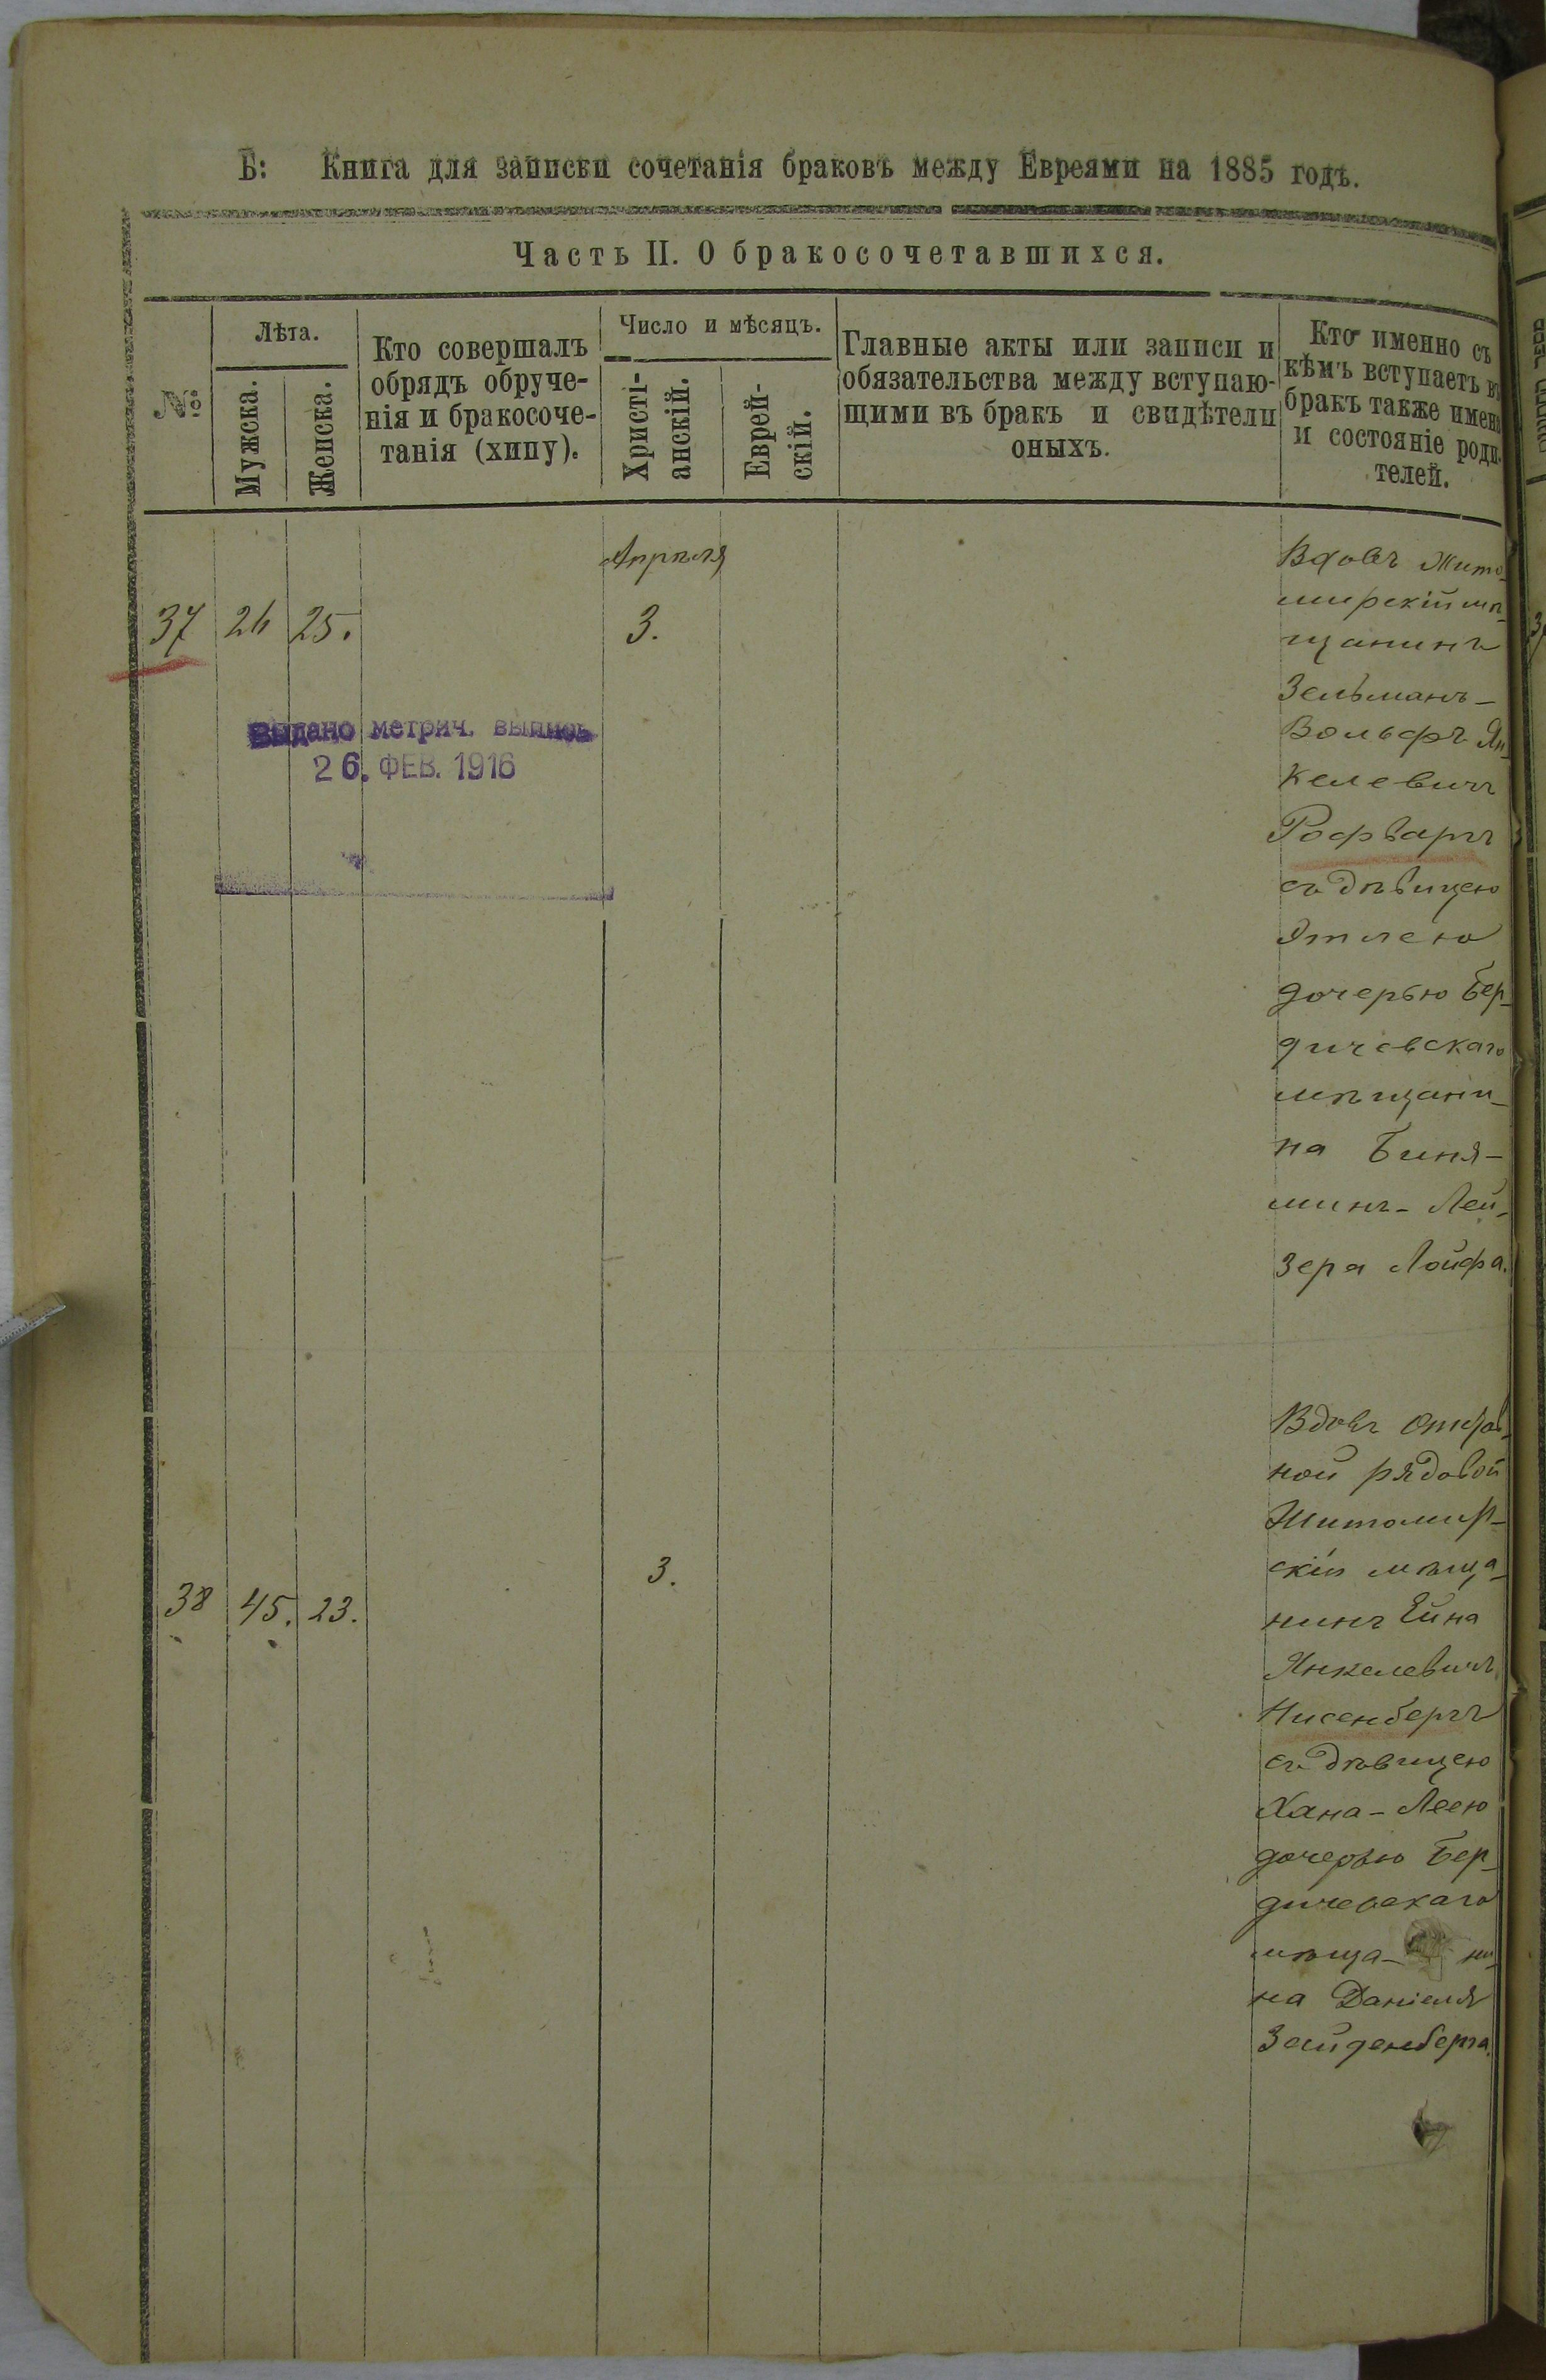 Б: Книга для записки сочетанія браковъ между Евреями на 1885 годъ.
Часть II. О бракосочетавшихся.
№
Лѣта.
Мужска.
Женска.
Кто совершалъ
обрядъ обруче-
нія и бракосоче-
танія (хипу).
Число и мѣсяцъ.
Христі-
анскій.
Еврей-
скій.
Главные акты или записи и
обязательства между вступаю-
щими въ бракъ и свидѣтели
оныхъ.
Кто именно съ
кѣмъ вступаетъ въ
бракъ также имена
и состояніе роди-
телей.
Апрѣля
37 26 25. 3.
Выдано метрич. выпись
26. ФЕВ. 1916
Вдовъ Жито-
мирскій мѣ-
щанинъ
Зельманъ-
Вольфъ Ян-
келевичъ
Рофваргъ
съ дѣвицею
Этлею
дочерью Бер-
дичевскаго
мѣщани-
на Биня-
минъ-Лей-
зера Лойфа.
38 45. 23. 3.
Вдовъ
ной рядовой
Житомир-
скій мѣща-
нинъ Ейна
Янкелевичъ
Нисенбергъ
съ дѣвицею
Хана-Леею
дочерью Бер-
дичевскаго
мѣща- ни-
на Даніеля
Зайденберга.